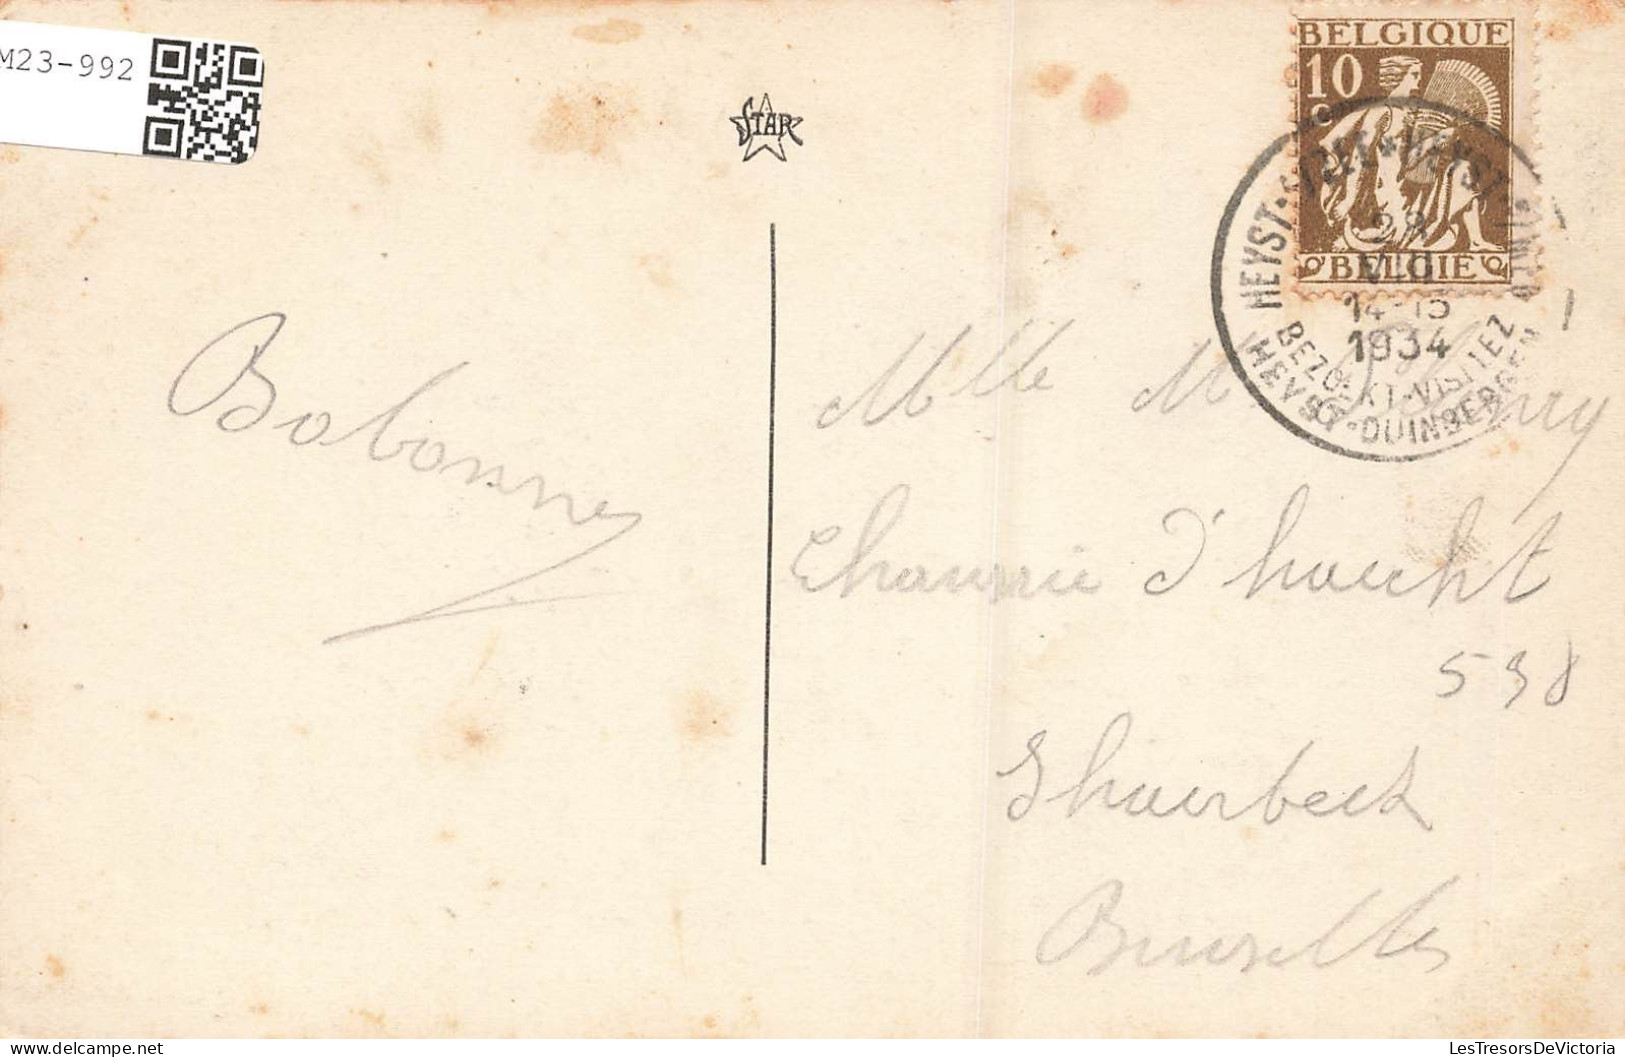 M23-992
STAR
BELGIQUE
10
C
BELGIE
HEYST
HEYST
28
VII
14-15
1934
BEZOEKT-VISITEZ
HEYST-DUINBERGEN
Bobonnes
Mlle M.
Chaussée d'haecht
538
Shaerbeek
Bruxelles
LesTresorsDeVictoria
delcampe.net